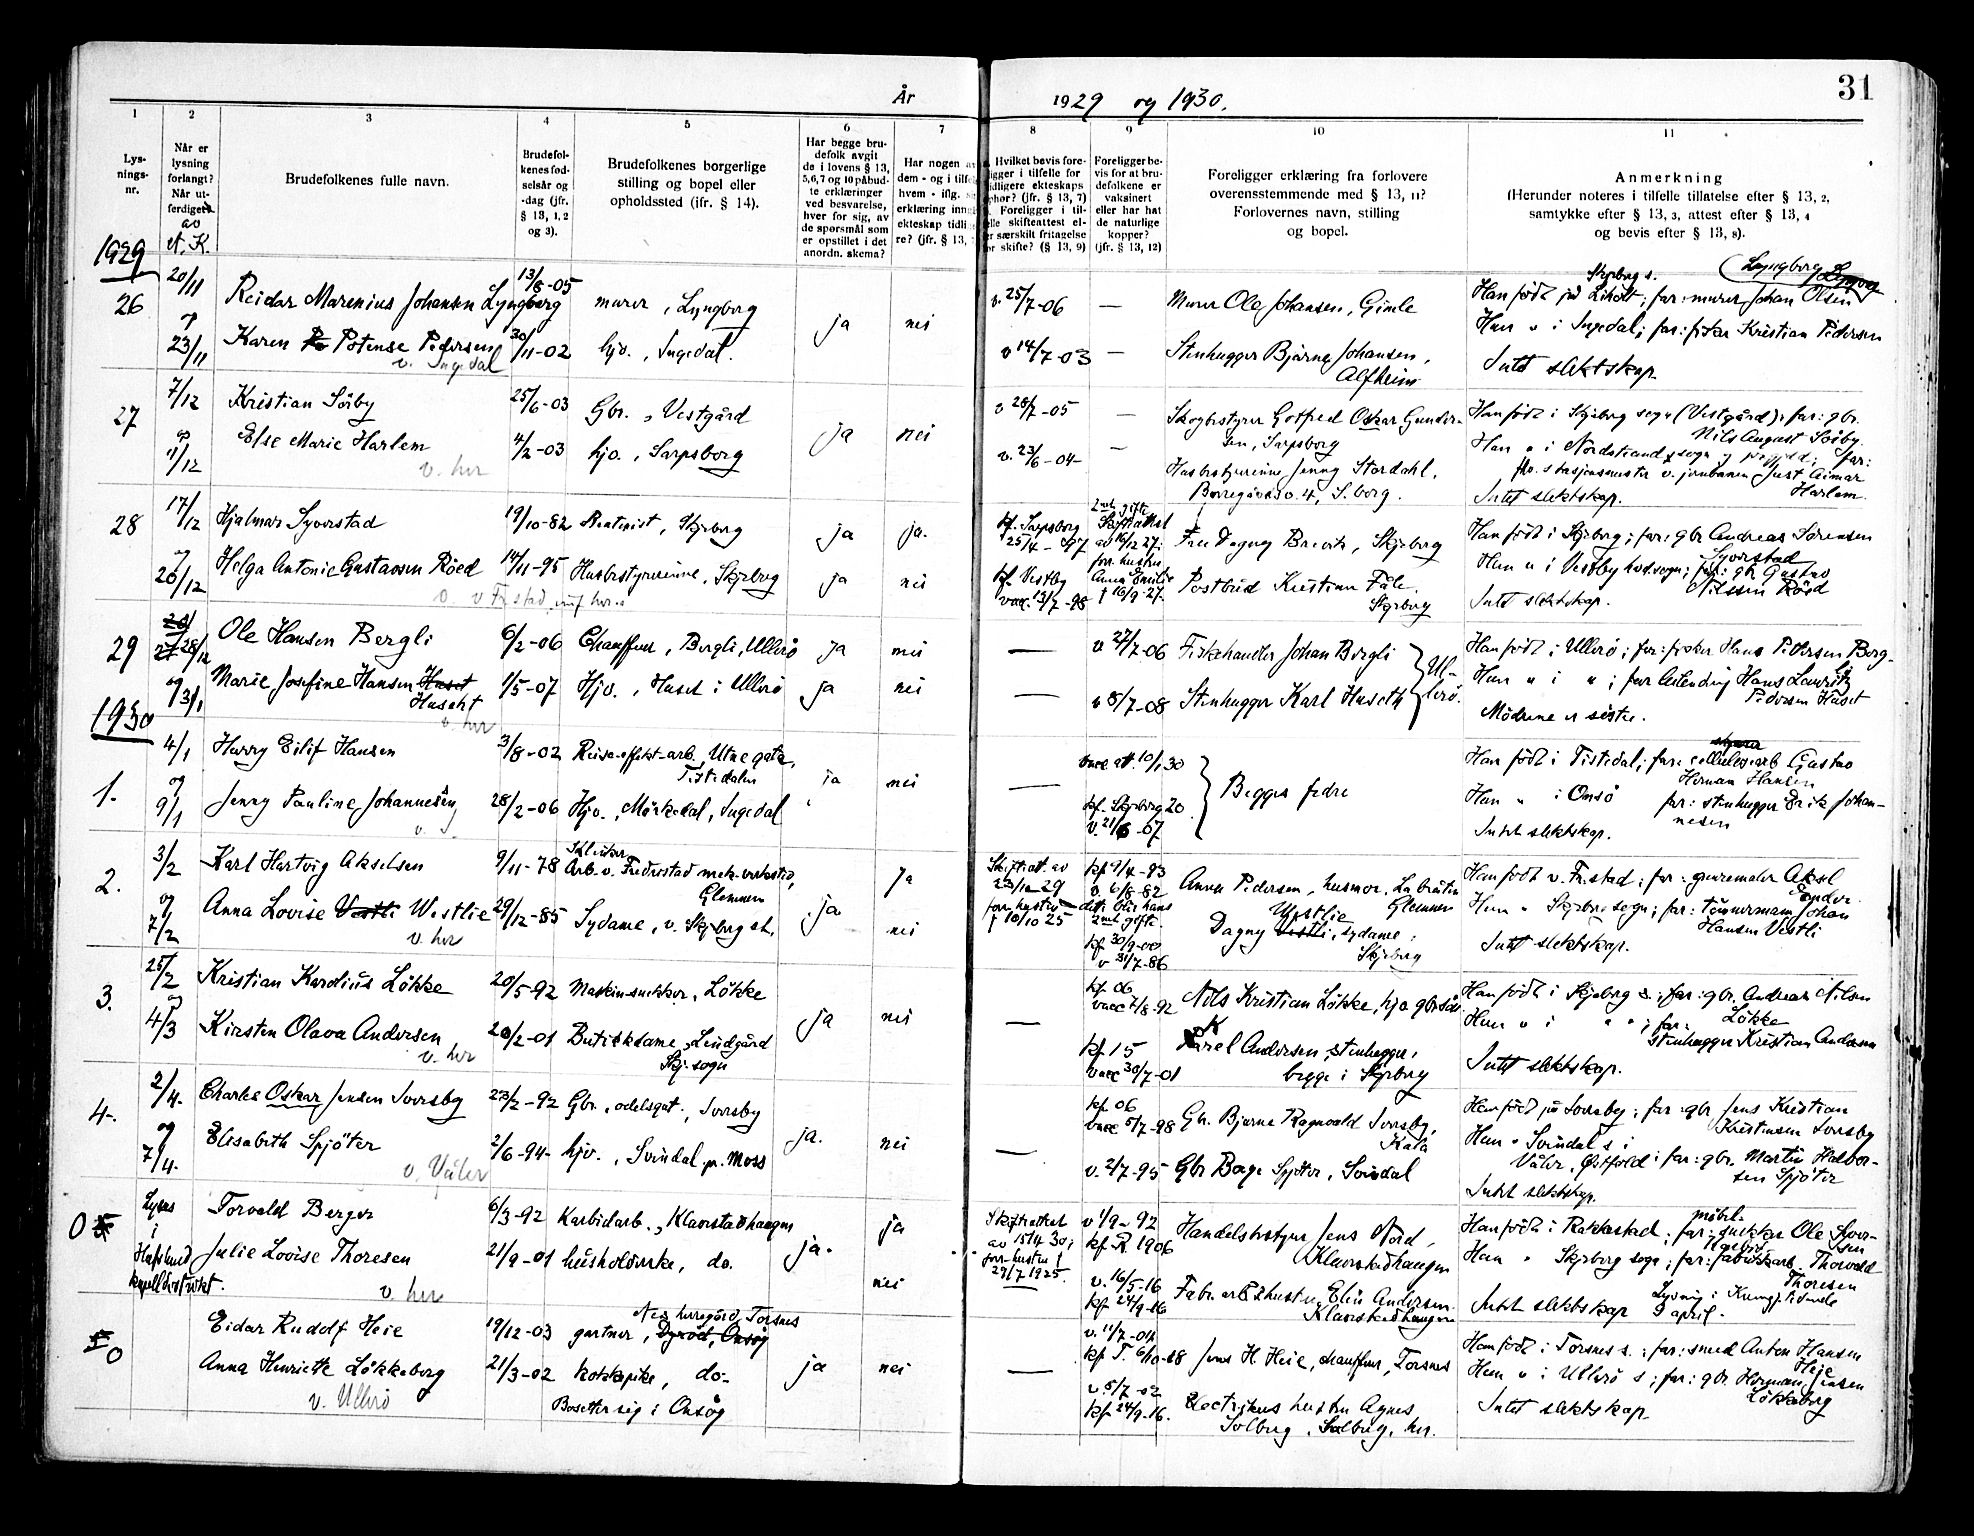 31
År
1929 og 1930.
1 2 3 4 5 6 7 8 9 10 11
Lys-
nings-
nr.
Når er
lysning
forlangt?
Når ut-
ferdiget
av
N. K.
Brudefolkenes fulle navn.
Brudefol-
kenes fød-
selsår og
-dag (jfr.
§ 13, 1, 2
og 3).
Brudefolkenes borgerlige
stilling og bopel eller
opholdssted (ifr. § 14).
Har begge bru-
defolk avgit
de i lovens § 13,
5,6,7 og 10 påbud-
te erklæringer
ved besvarelse,
hver for sig, av
de spørsmål som
er opstillet i det
anordn. skema?
Har nogen av
dem - og i tilfelle
hvem - iflg.
erklæring inng
ekteskap tidli
re? (jfr. § 13,
Hvilket bevis fore-
ligger i tilfelle for
tidligere ekteskaps
ophør? (jfr. § 13, 7)
Foreligger i til-
felle skifteattest el-
ler særskilt fritagelse
for skifte? (§ 13, 9)
Foreligger be-
vis for at bru-
defolkene er
vaksinert
eller har hat
de naturlige
kopper?
(jfr. § 13, 12)
Foreligger erklæring fra forlovere
overensstemmende med § 13, 11?
Forlovernes navn, stilling
og bopel.
Anmerkning
(Herunder noteres i tilfelle tillatelse efter § 13, 2,
samtykke efter § 13, 3, attest efter § 13, 4
og bevis efter § 13, 8).
1929
26
20/11
og
23/11
Reidar Marenius Johansen Lyngborg
13/8-05
murer, Lyngborg
Karen Potense Pedersen
v. Ingedal
30/11-02
hjv., Ingedal.
ja
nei
v. 25/7-06
—
v 14/7-03
—
Murer Ole Johansen, Gimle
Stenhugger Bjarne Johansen,
Alfheim
Skjeberg s. Lyngborg
Han født på Liholt; far: murer Johan Olsen
Hun " i Ingedal; far: fisker Kristian Pedersen
Intet slektskap
27
7/12
og
11/12
Kristian Sørby
25/6-03
Gbr., Vestgård
Else Marie Harlem
v. her
4/2-03
hjv., Sarpsborg
ja
nei
v 28/7-05
—
v. 23/6-04-
—
Skogbestyrer Gotfred Oskar Gunder-
sen, Sarpsborg
Husbestyrerinne Jenny Stordahl,
Borregård o. 4, S.borg.
Han født i Skjeberg sogn (Vestgård); far: gbr.
Nils August Sørby.
Hun " i Nordstrand sogn; far:
stasjonsmester v. jernbanen Just Einar
Harlem
Intet slektskap.
28
17/12
og
20/12
Hjalmar Syverstad
19/10-82
Skjeberg
ja
ja.
Helga Antonie Gustavsen Røed
14/11-95
Husbestyrerinne, Skjeberg
ja
nei
kf. Sarpsborg
25/4-97
kf Vestby
vacc. 13/7-98
2net gifte
Skifteattest
av 16/12 27;
forr. hustru
Anna Emilie
† 16/9-27.
Fru Dagny Brevik, Skjeberg
Postbud Kristian Fale.
Skjeberg
Han født i Skjeberg; far: gbr Andreas Sørensen
Syverstad
Hun " i Vestby hvd.sogn; far: gbr Gustav
Nilssen Röed
Intet slektskap.
29
28/12
og
3/1
Ole Hansen Bergli
6/2-06
Chauffeur, Bergli, Ullerö
ja
nei
Marie Josefine Hansen Huset
Huseht
v. her
1/5-07
Hjv., Huset i Ullerö
ja
nei
—
—
v 27/7-06
v 8/7-08
Fiskehandler Johan Bergli
Stenhugger Karl Huseth
Ul-
lerö.
Han født i Ullerö; far: fisker Hans Pedersen Berg-
li
Hun " i " ; far: Hans Lauritz
Pedersen Huset
Mødrene er søstre.
1930
1.
4/1
og
9/1
Harry Eilif Hansen
3/8-02
Reise-effekt-arb., Utne gata,
Tistedalen
Jenny Pauline Johannesen
28/2-06
Hjv., Mörkedal, Ingedal
ja
nei
—
vacc att. 10/1 30
kf. Skjeberg 20
v. 21/6-07
Begges fedre
Han født i Tistedal; far: cellulosearb Gustav
Herman Hansen
Hun " i Onsö far: stenhugger Erik Johan-
nesen
Intet slektskap.
2.
3/2
og
7/2
Karl Hartvig Akselsen
9/11-78
Arb. v. Fredrikstad mek. verksted,
Glemmen
ja
Anna Lovise Vestli Westlie
v. her
29/12-85
Sydame, v. Skjeberg st.
ja
nei
Skifteatt. av
23/10-29
forr. hustru
† 10/10 25
kf 9/4-93
v 6/8-82
det blir hans
2net gifte.
kf 30/9-00
v 31/7-86
Anna Pedersen, husmor, Labråten
Glemmen
Westlie
Dagny Vestli, sydame,
Skjeberg
Han født v. Fr.stad; far: gjøremaler Aksel
Hun " Skjeberg sogn; far: tømmermann Johan
Hansen Vestli
Intet slektskap.
3.
25/2
og
4/3
Kristian Kardius Lökke
20/5-92
Maskin-snekker, Lökke
Kirsten Olava Andersen
v. her
20/2-01
Butikkdame, Lindgård
Skj. sogn
ja
nei
—
kf. 06
vacc 7/8-92
kf. 15
vacc 30/7-01
Nils Kristian Lökke, hja gbrsön
Karel Andersen, stenhugger,
begge i Skjeberg
Han født i Skjeberg s.; far: gbr. Andreas Nilsen
Lökke
Hun " i " "; far:
stenhugger Kristian Andersen
Intet slektskap.
4.
2/4.
og
7/4.
Charles Oskar Jensen Sorsby
23/2-92
Gbr., odelsgut, Sorsby
Elisabeth Spjöter
v. Våler
2/6-94-
hjv., Svindal pr. Moss
ja.
nei
—
kf 06
vacc 5/7-98
v. 2/7-95
Gbr. Bjarne Ragnvald Sorsby,
Kala
Gbr Borge Spjöter, Svindal
Han født på Sorsby; far: gbr Jens Kristian
Kristensen Sorsby
Hun " Svindal s i
Våler, Østfold; far: gbr. Martin Halvor-
sen Spjöter
Intet slektskap.
0 5
Lyses
i
Hafslund
kapelldistrikt.
Torvald Berger
6/3-92
Karbidarb., Klavestadhaugen
ja
Julie Lovise Thoresen
v. her
21/9-01
husholderske, do.
ja.
nei
Skifteattest
av 15/4 30;
forr. hustru †
29/7 1925.
v 1/9-92
kf R. 1906
v. 16/5-16
kf 24/9-16
Handelsbestyrer Jens Nord,
Klavestadhaugen
Fabr. arb.hustru Elin Andersen
Klavestadhaugen
Han født i Rakkestad; far: møbel-
snekker Ole Syver-
sen
Hun " Skjeberg sogn; far: fabrikkarb. Thorvald
Thoresen
Intet slektskap
Lysning i Kunngj.tidende
9 april.
0
Eidar Rudolf Heie
19/12-03
Nes herregård, Torsnes
gartner, Onsøy
Anna Henriette Lökkeberg
v. Ullerö
21/3-02
kokkepike, do-
Bosetter sig i Onsøy
ja
nei
—
v. 11/7-04
kf T. 6/10-18
v. 5/7-02
kf 24/9-16.
Jens H. Heie, chauffeur, Torsnes
Electrikers hustru Agnes
Solberg, Solberg, her.
Han født i Torsnes s.; far: smed Anton Hansen
Heie
Hun " i Ullerö s; far: gbr. Herman Jensen
Lökkeberg
Intet slektskap